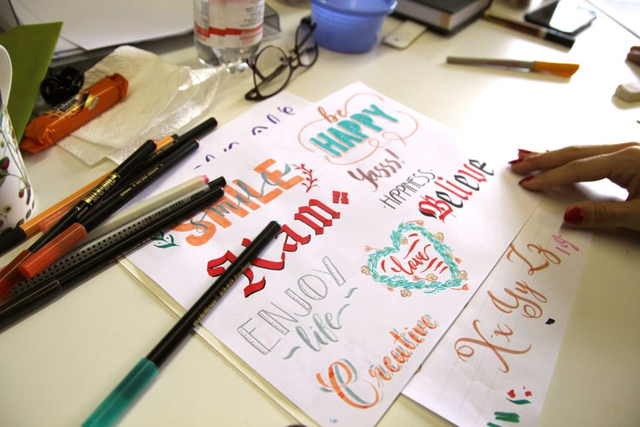 be
HAPPY
Yass!
SMILE
smile
·HAPPINESS·
Believe
Ham
love
ENJOY
~life~
Creative
Xx Yy Zz